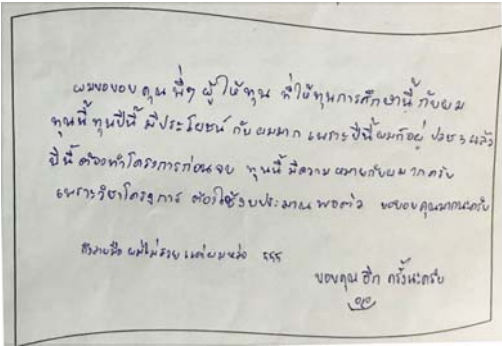 ผมขอขอบคุณพี่ๆ ผู้ให้ทุน ที่ให้ทุนการศึกษานี้ กับผม
ทุนนี้ ทุนปีนี้ มีประโยชน์ กับผมมาก เพราะปีนี้ผมก็อยู่ ปวช 3 แล้ว
ปีนี้ ต้องทำโครงการก่อนจบ ทุนนี้ มีความหมายกับผมมากครับ
เพราะวิชาโครงการ ต้องใช้งบประมาณ พอตัว ขอขอบคุณมากนะครับ
ถึงลายมือ ผมไม่สวย แต่ผมหล่อ 555
ขอบคุณ อีก ครั้งนะครับ